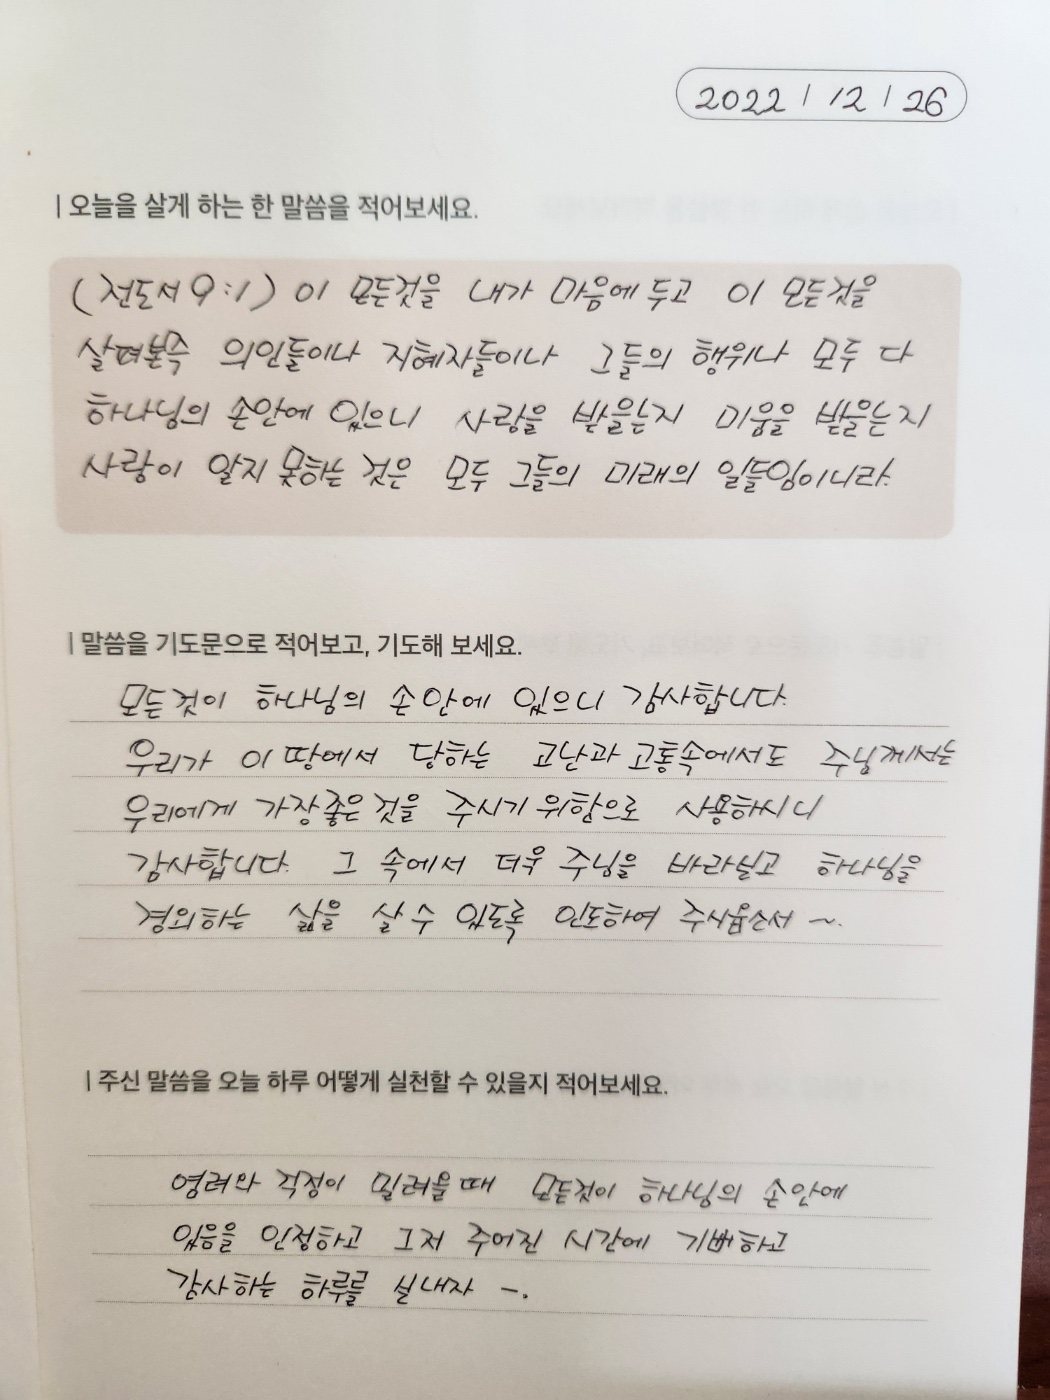 2022 / 12 / 26
| 오늘을 살게 하는 한 말씀을 적어보세요.
(전도서 9:1) 이 모든것을 내가 마음에 두고 이 모든것을
살펴본즉 의인들이나 지혜자들이나 그들의 행위나 모두 다
하나님의 손안에 있으니 사랑을 받을는지 미움을 받을는지
사랑이 알지 못하는 것은 모두 그들의 미래의 일들임이니라.
| 말씀을 기도문으로 적어보고, 기도해 보세요.
모든것이 하나님의 손 안에 있으니 감사합니다.
우리가 이 땅에서 당하는 고난과 고통속에서도 주님께서는
우리에게 가장 좋은 것을 주시기 위함으로 사용하시니
감사합니다. 그 속에서 더욱 주님을 바라보고 하나님을
경외하는 삶을 살 수 있도록 인도하여 주시옵소서 ~.
| 주신 말씀을 오늘 하루 어떻게 실천할 수 있을지 적어보세요.
염려와 걱정이 밀려올때 모든것이 하나님의 손 안에
있음을 인정하고 그저 주어진 시간에 기뻐하고
감사하는 하루를 보내자 ~.